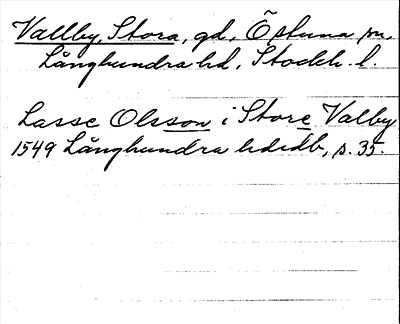 Vallby, Stora, gd, Östuna sn,
Långhundra hd, Stockh. l.
Lasse Olsson i Store Valby
1549 Långhundra hdrdb, s. 35.